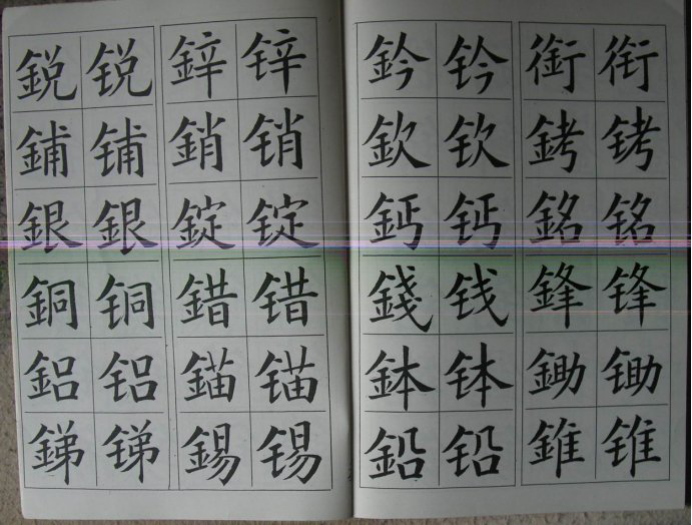 鋭锐鋅锌
鋪铺銷销
銀銀錠锭
銅铜錯错
鋁铝錨锚
銻锑錫锡
鈐钤銜衔
欽钦銬铐
鈣钙銘铭
錢钱鋒锋
鉢钵鋤锄
鉛铅錐锥